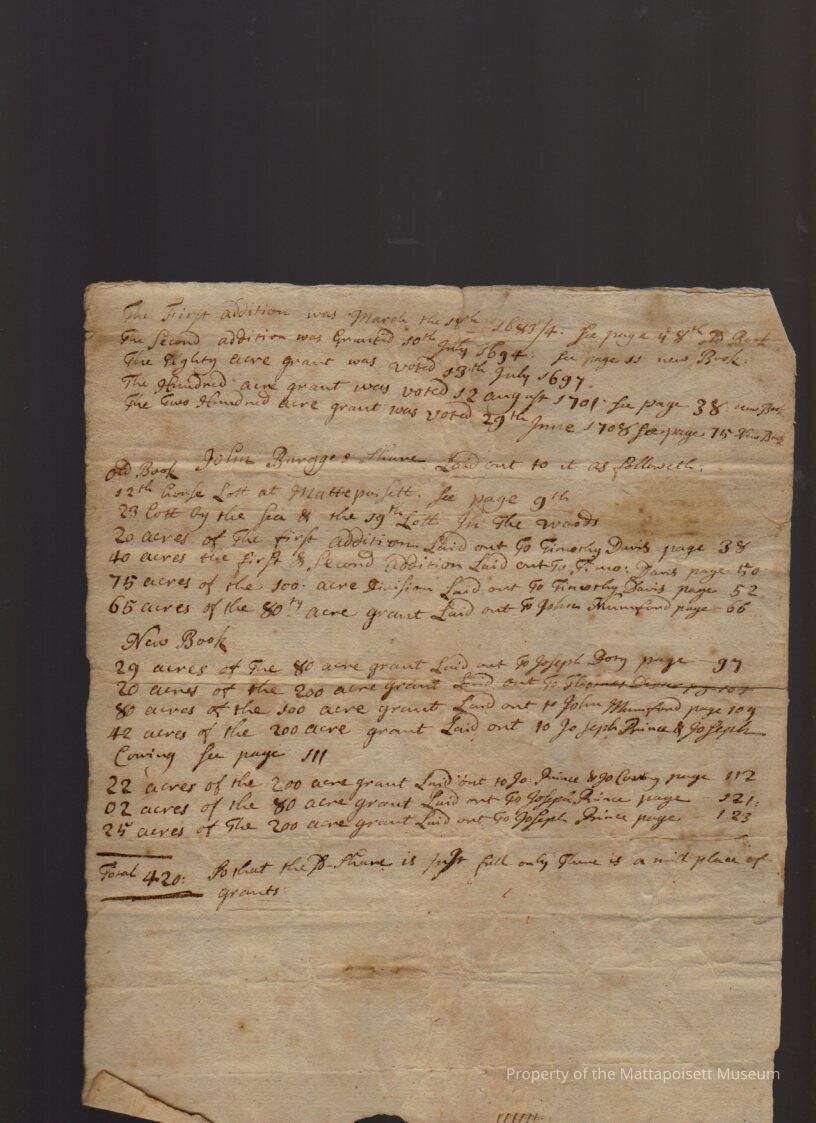 The First addition was March the 18th 1683/4: See page 48th old Book
The Second addition was Granted 10th July 1694: See page 11 new Book:
The Eighty acre grant was voted 13th July 1697.
The Hundred acre grant was voted 12 august 1701. See page 38 new Book
The Two Hundred acre grant was voted 29th June 1708 See page 75 New Book
John Burgges Share Laid out to it as followeth:
Old Book
12th House Lott at Mattepoisett. See page 9th
23 Lott by the Sea & the 19th Lott In The woods
20 acres of The first addition Laid out To Timothy Davis page 38
40 acres the first & Second addition Laid out To Timo: Davis page 50
75 acres of the 100: acre Division Laid out To Timothy Davis page 52
65 acres of the 80ty acre grant Laid out To John Mumford page 66
New Book
29 acres of The 80 acre grant Laid out To Joseph Doty page 97
20 acres of the 200 acre grant Laid out To Thomas
80 acres of the 100 acre grant Laid out to John Mumford page 109
42 acres of the 200 acre grant Laid out to Joseph Prince & Joseph
Cowing See page 111
22 acres of the 200 acre grant Laid out to Jo: Prince & Jo Cowing page 112
02 acres of the 80 acre grant Laid out To Joseph Prince page 121:
25 acres of The 200 acre grant Laid out To Joseph Prince page 123
Total 420: So that the sd Share is Just full only There is a mist place of
grants
Property of the Mattapoisett Museum